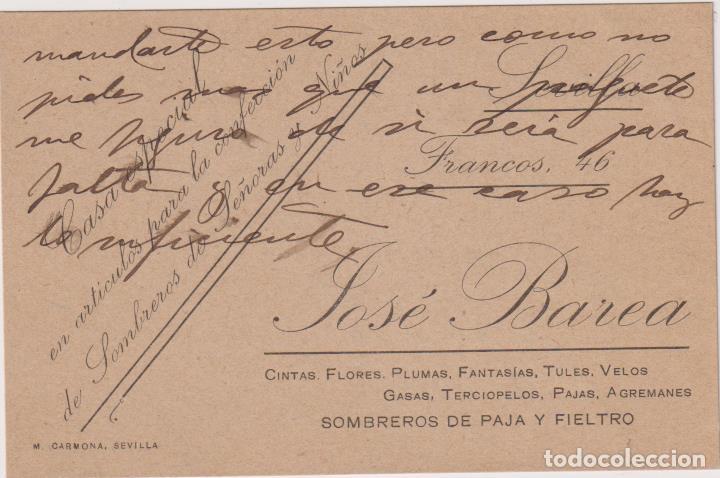 mandarte esto pero como no
pides mas que un paquete
me figuro de si seria para
falta y en ese caso hay
lo suficiente
Casa especial
en artículos para la confección
de Sombreros de Señoras y Niños
Sevilla
Francos, 46
José Barea
CINTAS. FLORES. PLUMAS, FANTASÍAS, TULES, VELOS
GASAS, TERCIOPELOS, PAJAS, AGREMANES
SOMBREROS DE PAJA Y FIELTRO
M. CARMONA, SEVILLA
todocoleccion